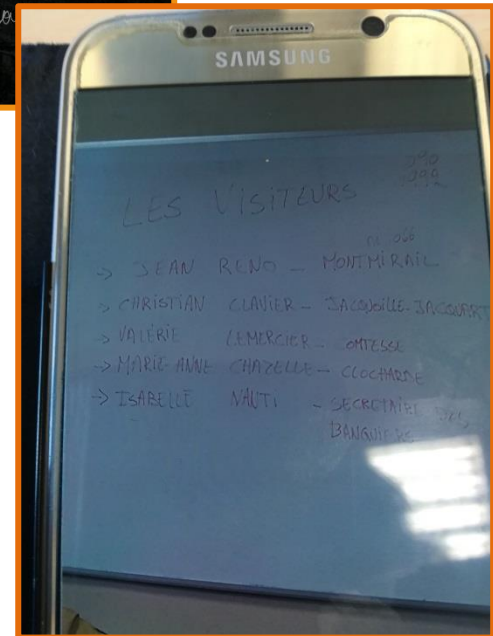 SAMSUNG
LES VISITEURS
→ JEAN RENO - MONTMIRAIL
→ CHRISTIAN CLAVIER - JACQUOUILLE-JACQUART
→ VALÉRIE LEMERCIER - COMTESSE
→ MARIE-ANNE CHAZELLE - CLOCHARDE
→ ISABELLE NAUTI - SECRETAIRE
BANQUIERS